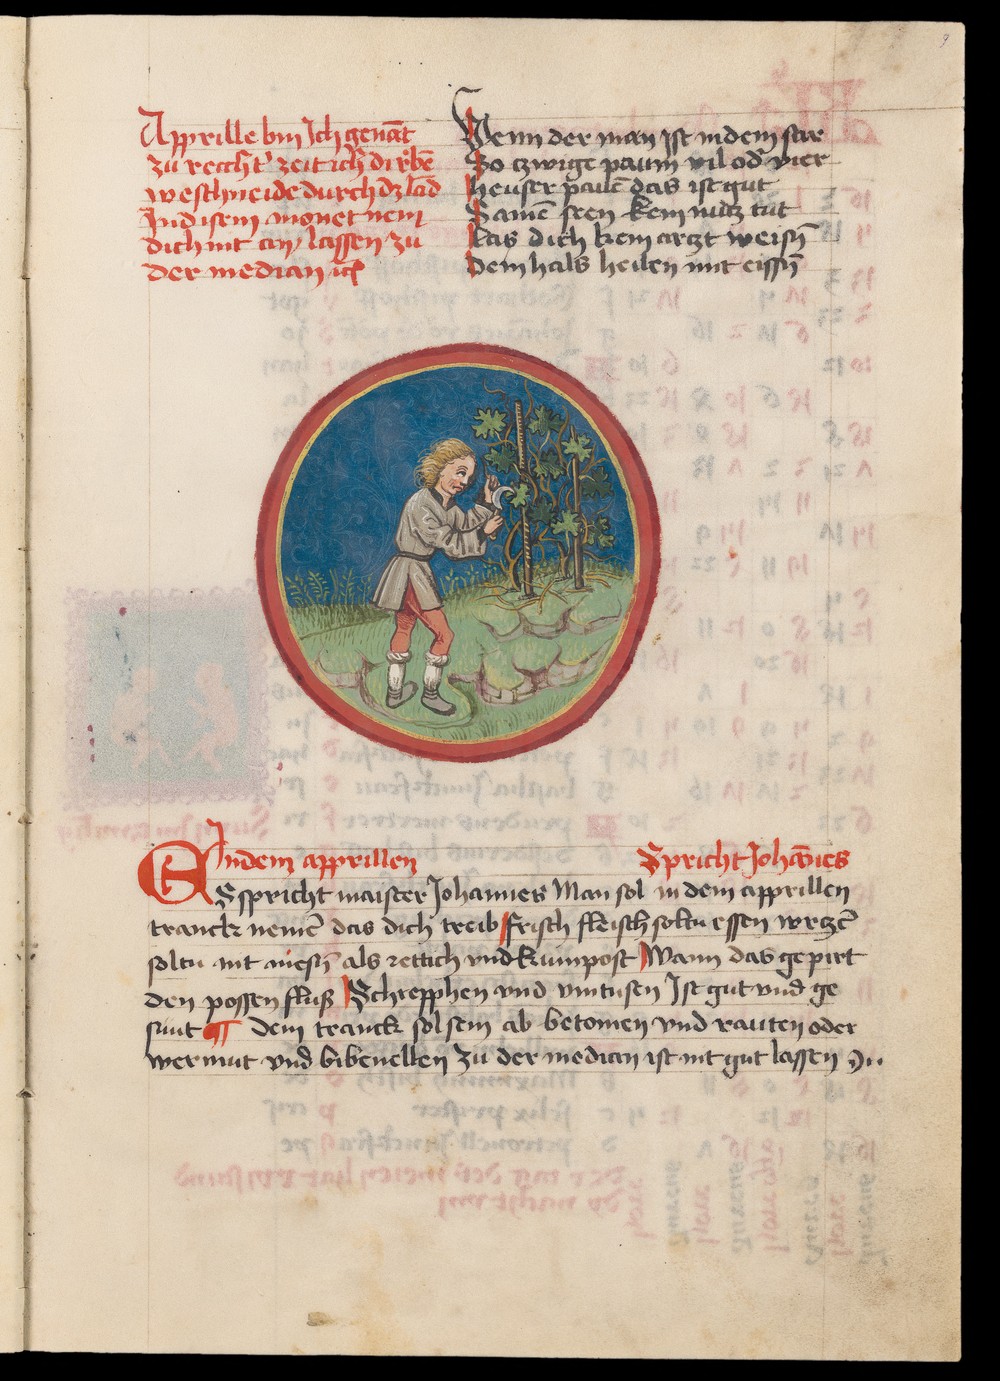 Apprille bin Ich genāt
zu rechtˀ zeit ich die rebē
we schneide durch dz lād
In disem monet nem
dich nit an / lassen zu
der median ich
Wenn der man Ist in dem stir
So czwige paum vil odˀ vier
heuser pauē das ist gut
Samē seen kein nutz tut
Las dich kein arczt weisn̄
Dem hals heilen mit eissn̄
Indem apprillen
Spricht Johānes
ES spricht maister Johannes Man sol in dem apprillen
tranck nemē das dich treib frisch fleisch soltu essen wrczē
soltu nit niesn̄ als rettich vnd kumpost Wann das gepirt
den possen fluß Schrepphen vnd vintusen Ist gut vnd ge
sunt ¶ dein tranck sol sein ab betonien vnd rauten oder
wermut vnd bibenellen zu der median ist nit gut lassen
9